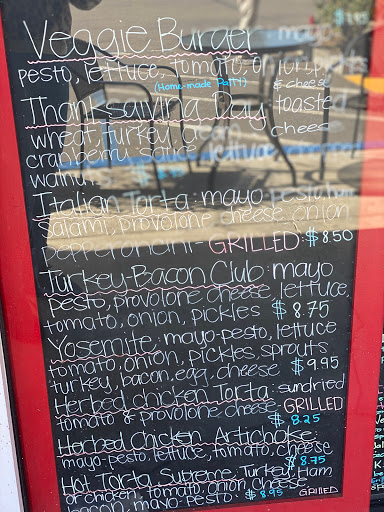 Veggie Burger mayo
pesto, lettuce, tomato, onion, pickles
(Home-made Patty) & cheese
Thanksgiving Day toasted
wheat, turkey, cream cheese
cranberry sauce, lettuce
walnut
Italian Torta: mayo-pesto
salami, provolone cheese, onion
pepperoncini GRILLED: $8.50
Turkey-Bacon Club: mayo
pesto, provolone cheese, lettuce,
tomato, onion, pickles $8.75
Yosemite: mayo-pesto, lettuce
tomato, onion, pickles, sprouts
turkey, bacon, egg, cheese $9.95
Herbed Chicken Torta: sundried
tomato & provolone cheese- GRILLED
$8.25
Herbed Chicken Artichoke:
mayo-pesto, lettuce, tomato, cheese
$8.75
Hot Torta Supreme, Turkey, Ham
or chicken, tomato, onion, cheese
bacon, mayo-pesto: $8.95 GRILLED